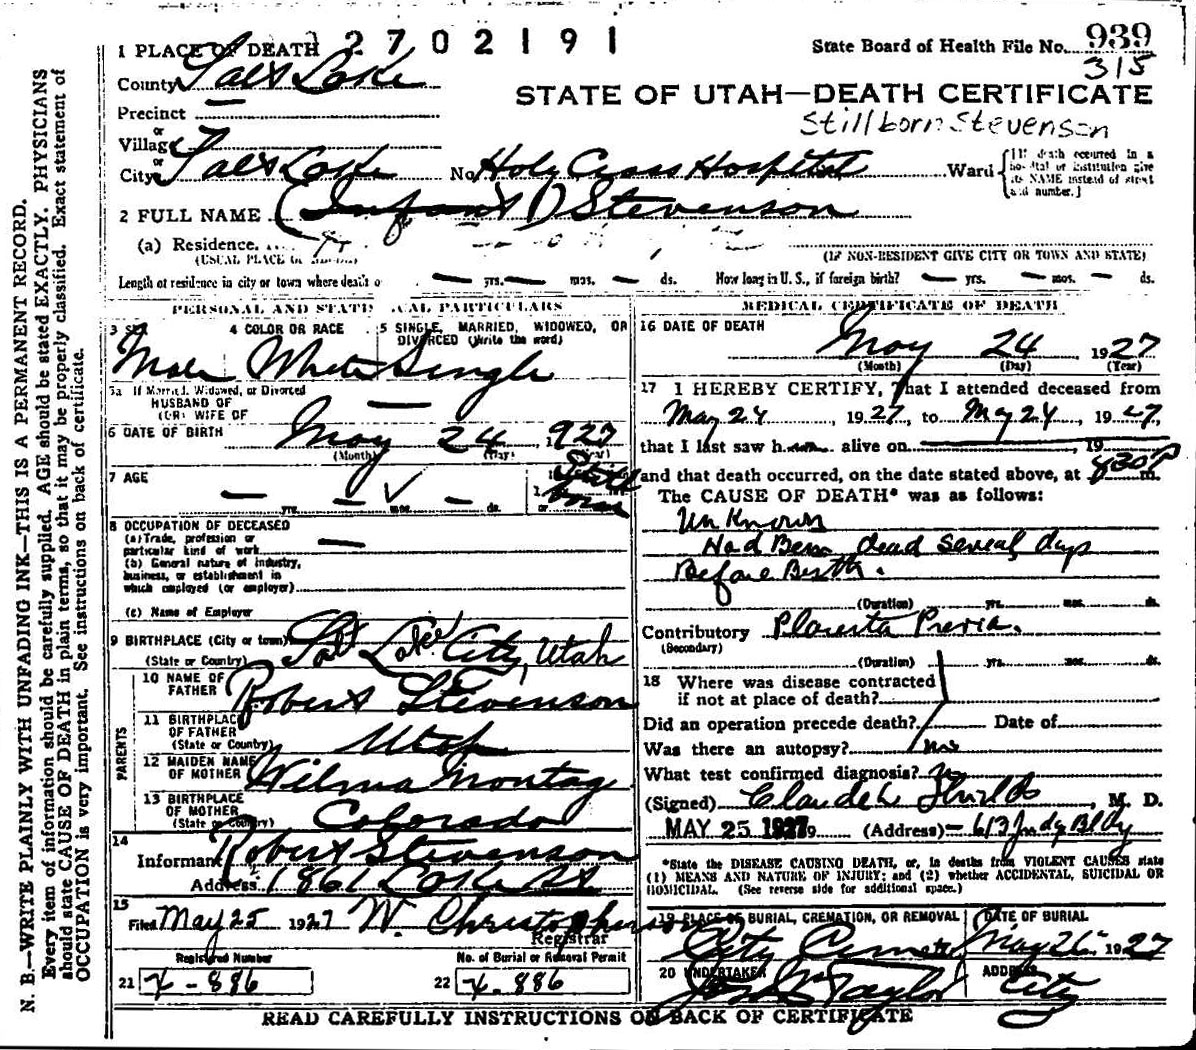 N. B.—WRITE PLAINLY WITH UNFADING INK—THIS IS A PERMANENT RECORD.
Every item of information should be carefully supplied. AGE should be stated EXACTLY. PHYSICIANS
should state CAUSE OF DEATH in plain terms, so that it may be properly classified. Exact statement of
OCCUPATION is very important. See instructions on back of certificate.
1 PLACE OF DEATH 2702191
State Board of Health File No. 939
315
County Salt Lake
STATE OF UTAH—DEATH CERTIFICATE
Precinct —
Stillborn Stevenson
or
Village
or
City Salt Lake No. Holy Cross Hospital Ward
[If death occurred in a
hospital or institution give
its NAME instead of street
and number.]
2 FULL NAME (Infant) Stevenson
(a) Residence.
(USUAL PLACE OF
(IF NON-RESIDENT GIVE CITY OR TOWN AND STATE)
Length of residence in city or town where death o — yrs. — mos. — ds. How long in U. S., if foreign birth? — yrs. — mos. — ds.
PERSONAL AND STATISTICAL PARTICULARS
3 SEX 4 COLOR OR RACE 5 SINGLE, MARRIED, WIDOWED, OR
DIVORCED (Write the word)
Male White Single
5a If Married, Widowed, or Divorced
HUSBAND OF
(OR) WIFE OF —
6 DATE OF BIRTH May 24, 1927
(Month) (Day) (Year)
7 AGE Still
— yrs. — mos. — ds. or born
8 OCCUPATION OF DECEASED
(a) Trade, profession or
particular kind of work —
(b) General nature of industry,
business, or establishment in
which employed (or employer)
(c) Name of Employer
9 BIRTHPLACE (City or town) Salt Lake City, Utah
(State or Country)
10 NAME OF
FATHER Robert Stevenson
11 BIRTHPLACE
OF FATHER
(State or Country) Utah
PARENTS
12 MAIDEN NAME
OF MOTHER Wilma Montag
13 BIRTHPLACE
OF MOTHER
(State or Country) Colorado
14
Informant Robert Stevenson
Address 1861 Lake St
15
Filed May 25 1927 W. Christopherson
Registrar
Registered Number No. of Burial or Removal Permit
21 X-886 22 X-886
MEDICAL CERTIFICATE OF DEATH
16 DATE OF DEATH
May 24, 1927
(Month) (Day) (Year)
17 I HEREBY CERTIFY, That I attended deceased from
May 24, 1927, to May 24, 1927,
that I last saw h alive on 19
and that death occurred, on the date stated above, at 830P m.
The CAUSE OF DEATH* was as follows:
Unknown
Had Been dead several days
Before Birth.
(Duration) yrs. mos. ds.
Contributory Placenta Previa.
(Secondary)
(Duration) yrs. mos. ds.
18 Where was disease contracted
if not at place of death?
Did an operation precede death? Date of
Was there an autopsy? no
What test confirmed diagnosis?
(Signed) Claude L Shields, M. D.
MAY 25 1927 (Address) — 613 Judge Bldg
*State the DISEASE CAUSING DEATH, or, in deaths from VIOLENT CAUSES state
(1) MEANS AND NATURE OF INJURY; and (2) whether ACCIDENTAL, SUICIDAL OR
HOMICIDAL. (See reverse side for additional space.)
19 PLACE OF BURIAL, CREMATION, OR REMOVAL DATE OF BURIAL
City Cemetery May 26 1927
20 UNDERTAKER ADDRESS
Jos Wm Taylor City
READ CAREFULLY INSTRUCTIONS ON BACK OF CERTIFICATE